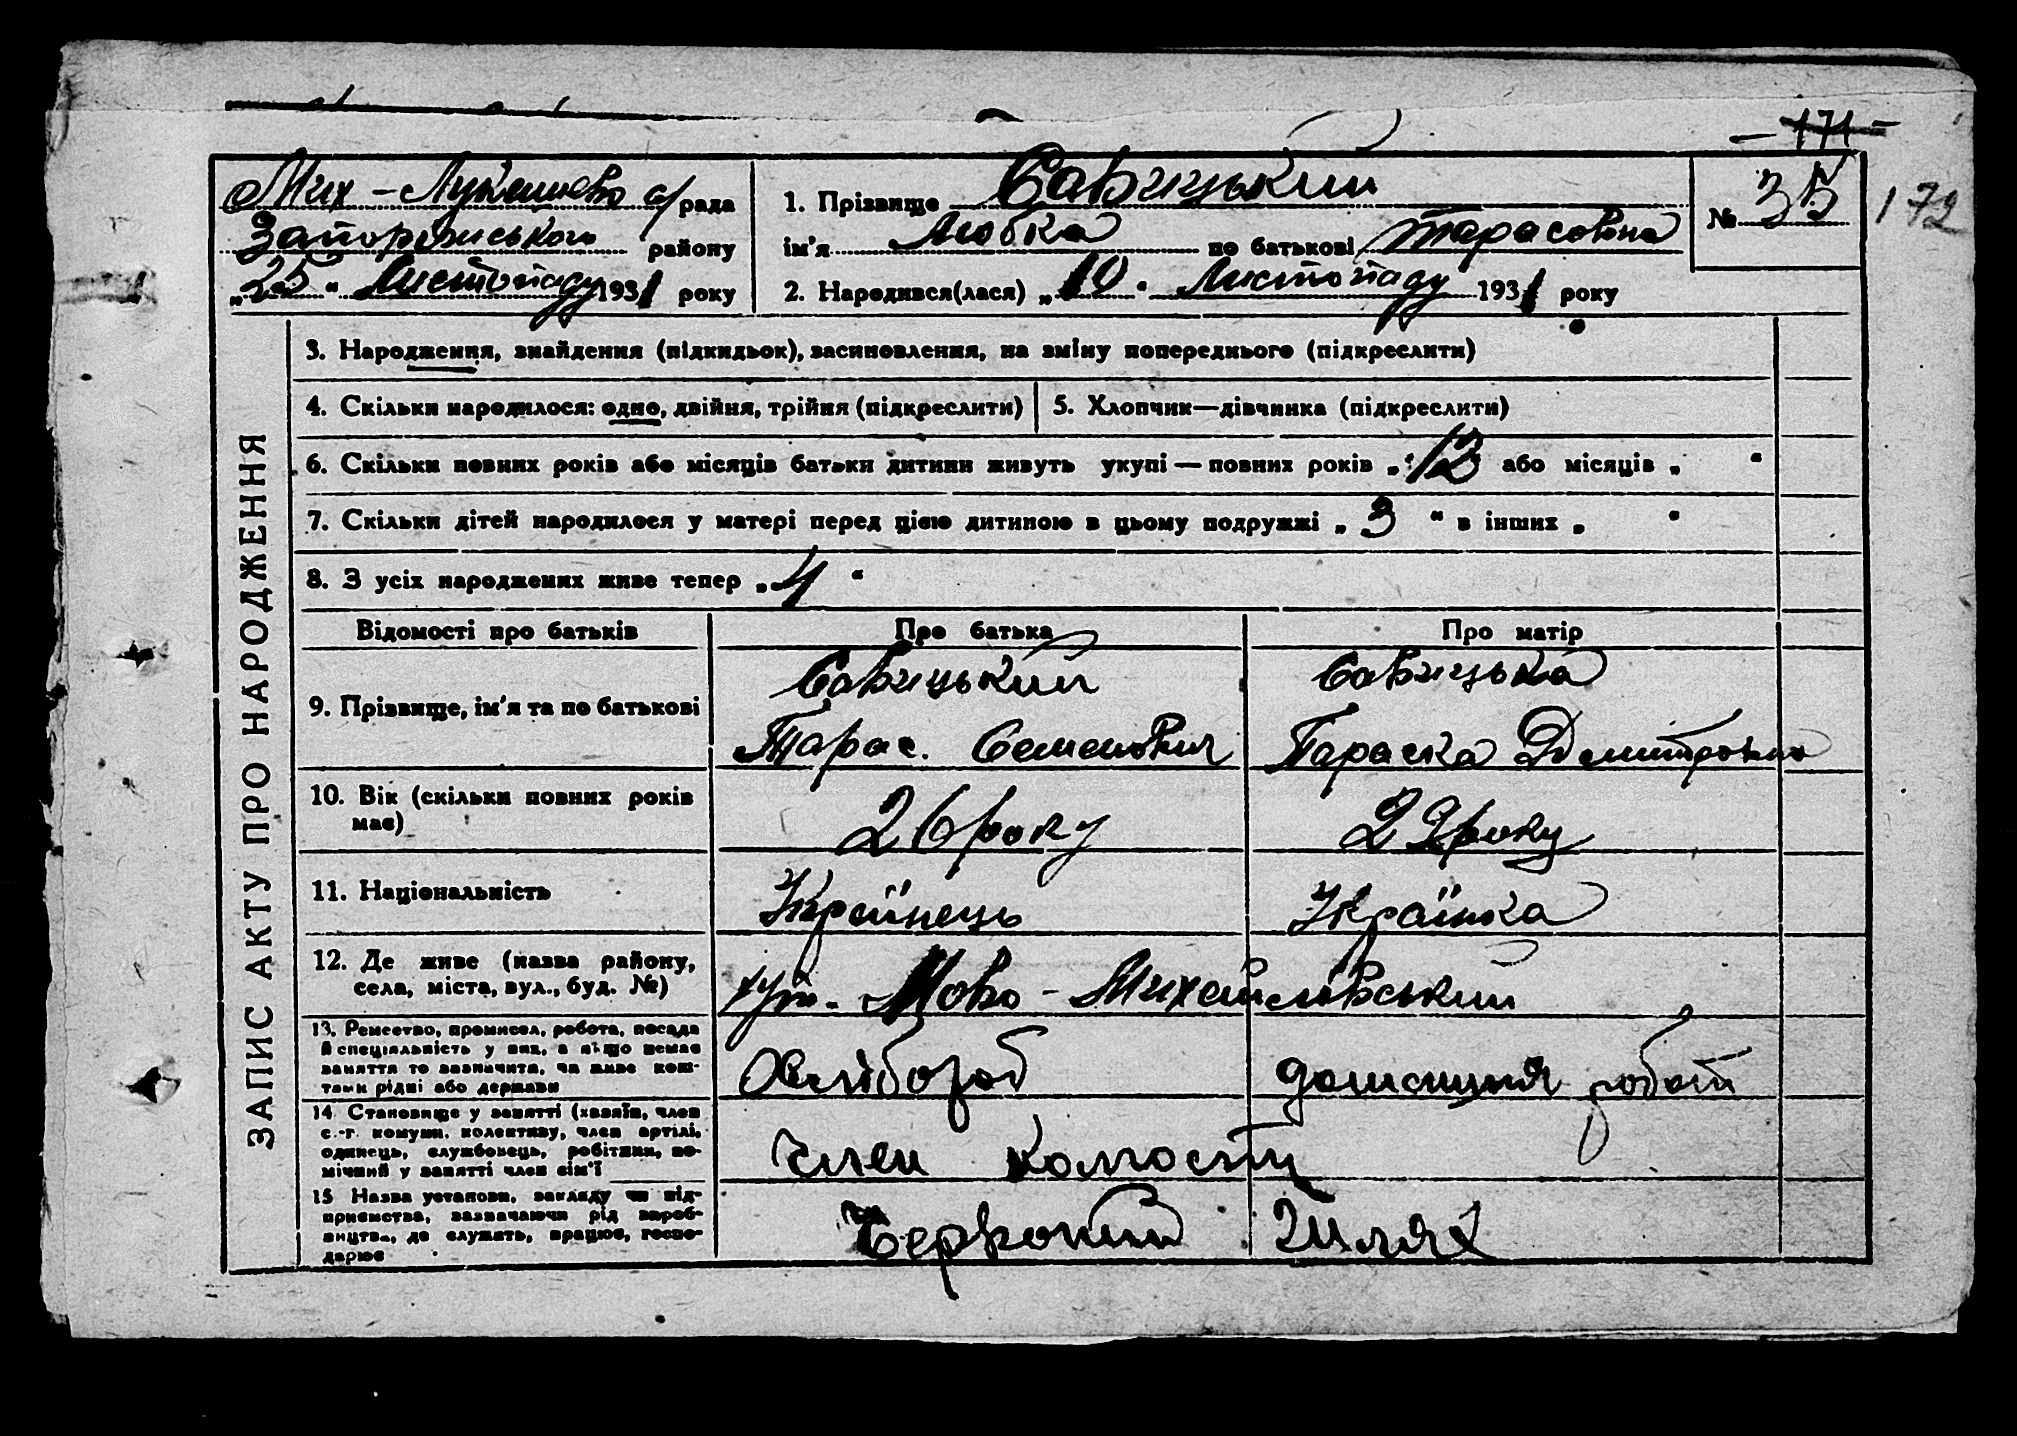 - 171 -
Мих-Лукашево с/рада
Запоріжського району
„25“ Листопаду 1931 року
1. Прізвище Савицький
ім'я Любка по батькові Тарасовна
2. Народився(лася) „10“ Листопаду 1931 року
№ 35
172
ЗАПИС АКТУ ПРО НАРОДЖЕННЯ
3. Народження, знайдення (підкидьок), засиновлення, на зміну попереднього (підкреслити)
4. Скільки народилося: одно, двійня, трійня (підкреслити)
5. Хлопчик—дівчинка (підкреслити)
6. Скільки повних років або місяців батьки дитини живуть укупі — повних років „12“ або місяців „ “
7. Скільки дітей народилося у матері перед цією дитиною в цьому подружжі „ 3 “ в інших „ “
8. З усіх народжених живе тепер „4“
Відомості про батьків
Про батька
Про матір
9. Прізвище, ім'я та по батькові
Савицький
Тарас. Семенович
Савицька
Параска Дмитровна
10. Вік (скільки повних років
має)
26 року
29 року
11. Національність
Українець
Українка
12. Де живе (назва району,
села, міста, вул., буд. №)
хут. Ново-Михайлівський
13. Ремество, промисел, робота, посада
й спеціяльність у них, а якщо немає
заняття то зазначити, чи живе кош-
тами рідні або держави
Хлібороб
домашня робот
14. Становище у занятті (хазяїн, член
с.-г. комуни, колективу, член артілі,
одинець, службовець, робітник, по-
мічний у занятті член сім'ї
член колгоспу
15 Назва установи, закладу чи під-
приємства, зазначаючи рід вироб-
ництва, де служить, працює, госпо-
дарює
Червоний Шлях